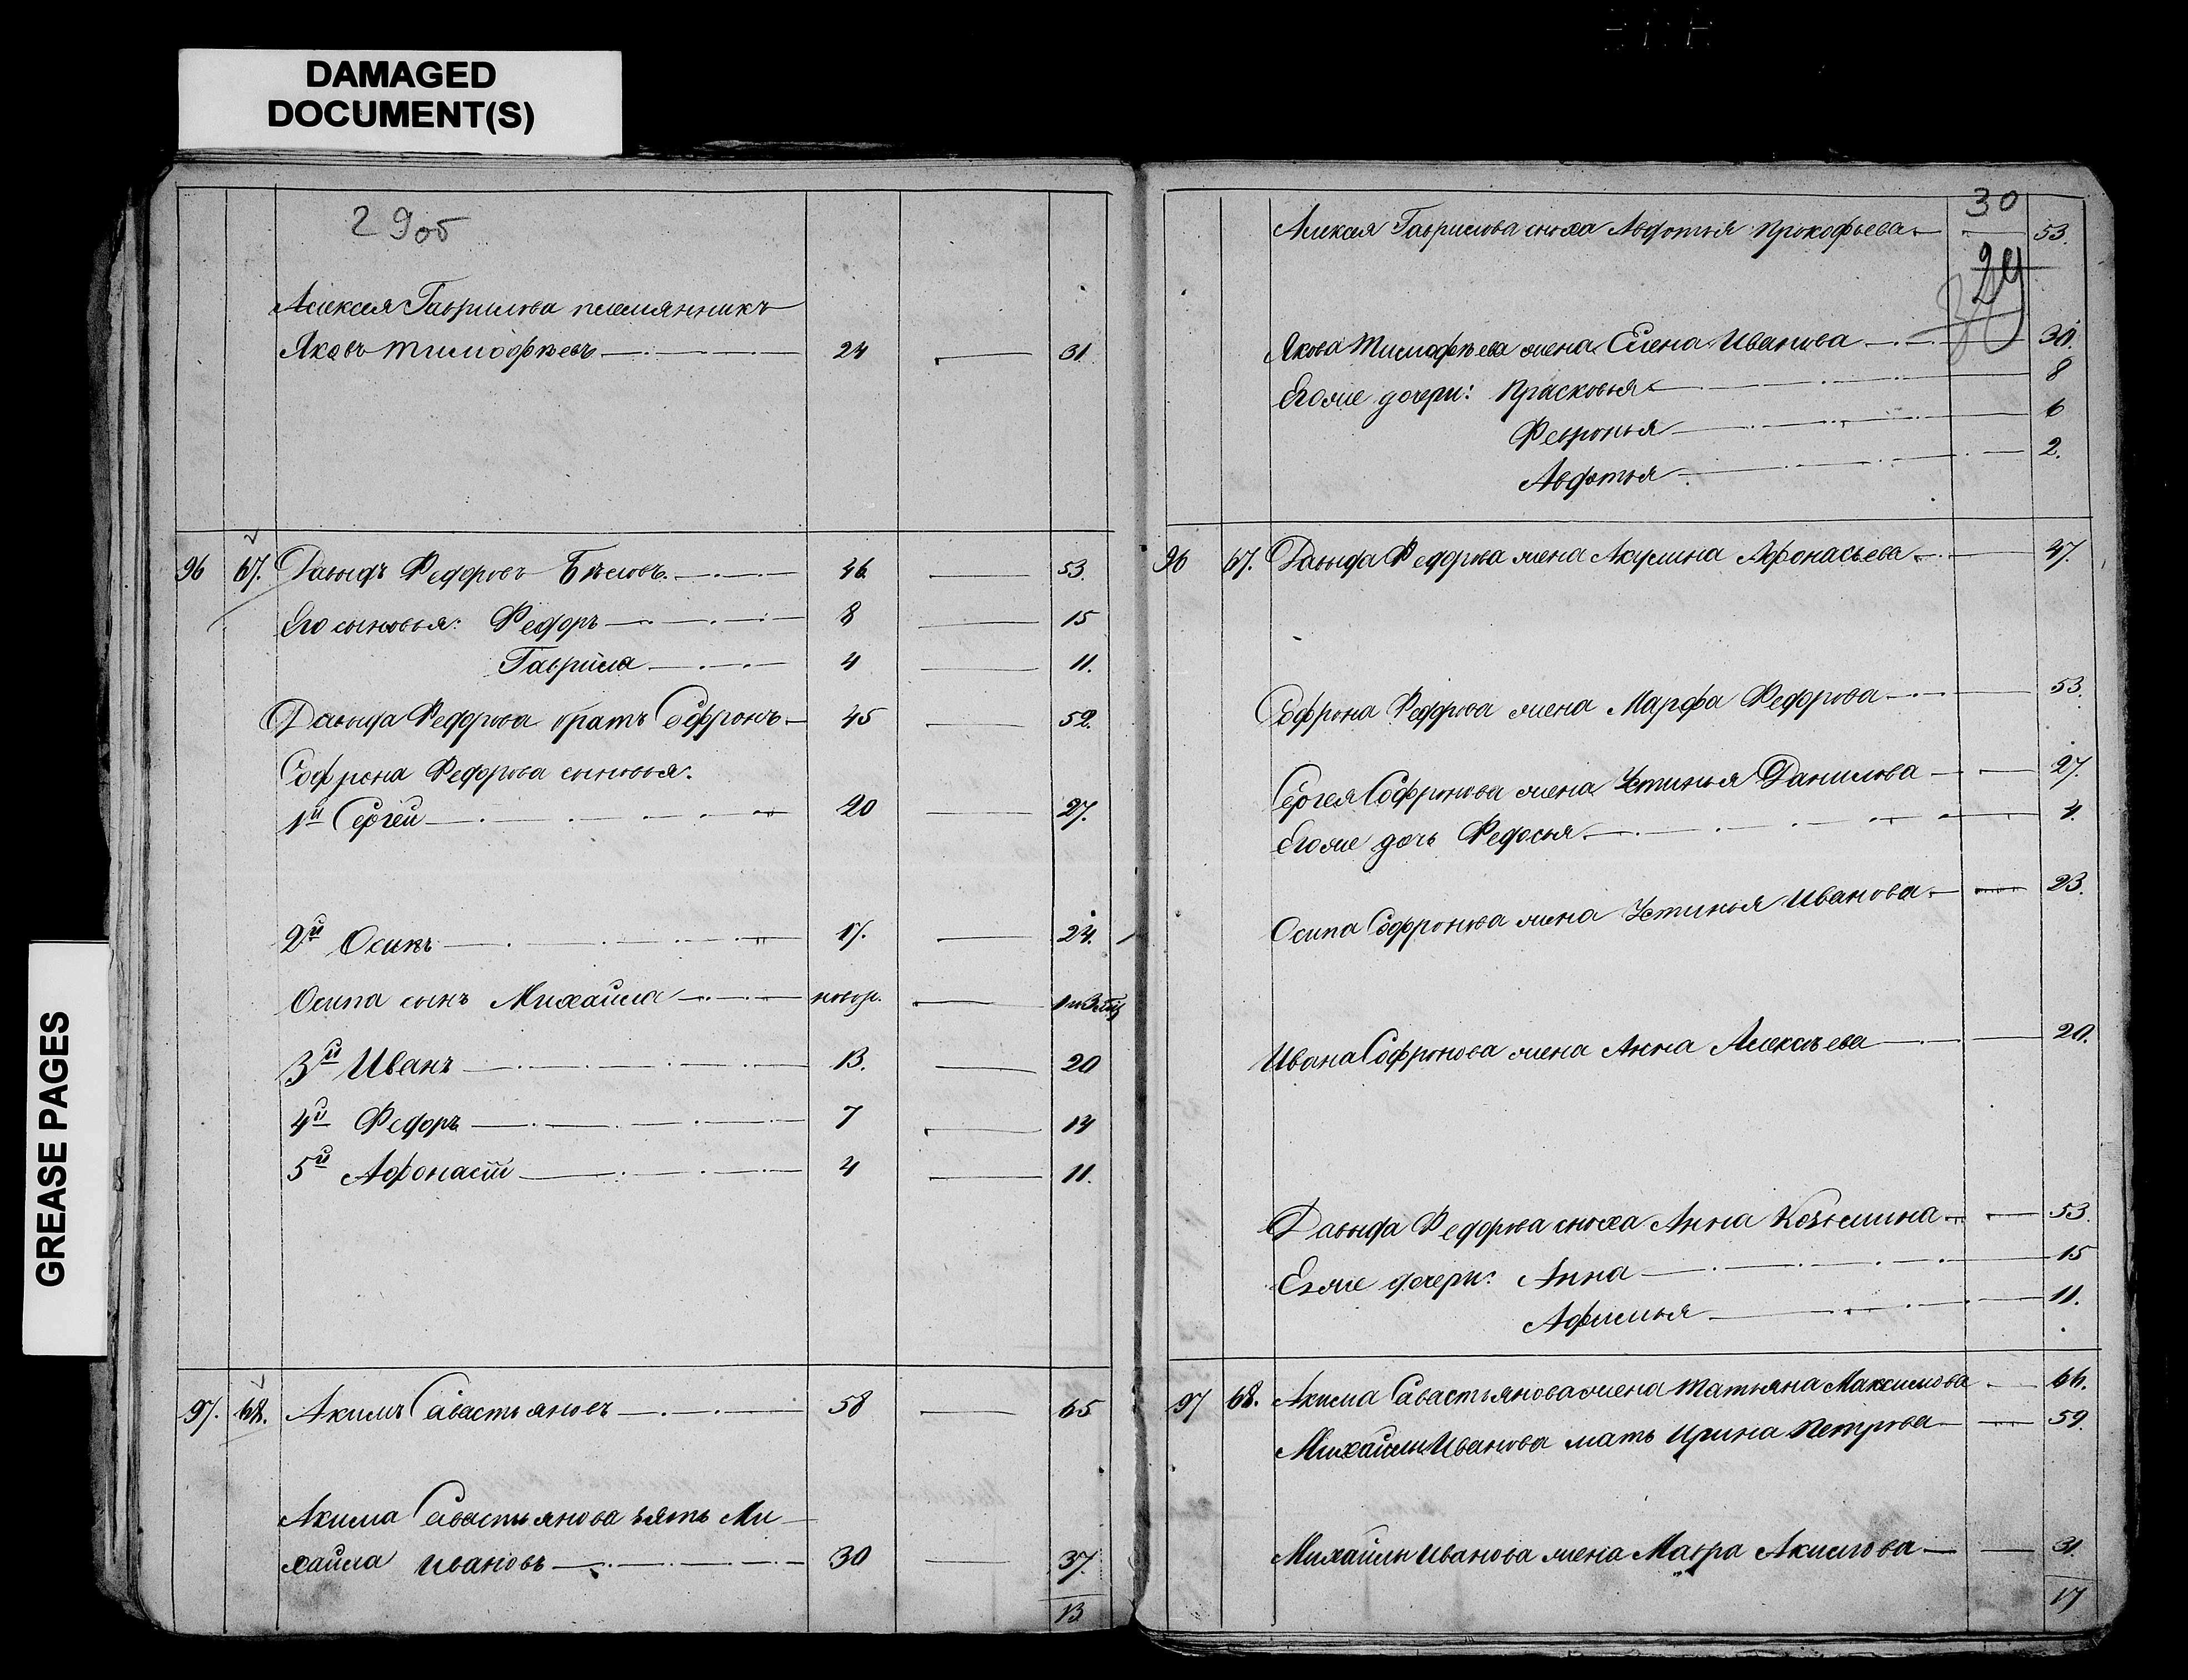 DAMAGED
DOCUMENT(S)
GREASE PAGES
29об
Алексея Гаврилова племянникъ
Яковъ Тимофѣевъ 24 31
96 67. Давыдъ Федоровъ Бѣловъ. 46 53.
Его сыновья: Федоръ 8 15
Гаврила 4 11.
Давыда Федорова братъ Софронъ 45 52.
Софрона Федорова сыновья:
1й Сергей 20 27.
2й Осипъ 17. 24.
Осипа сынъ Михайла новор.
3й Иванъ 13. 20
4й Федоръ 7 14
5й Афонасій 4 11.
97. 68. Акимъ Савастьяновъ 58 65
Акима Савастьянова зять Ми
хайла Ивановъ 30 37.
13
30
Алексея Гаврилова сноха Авдотья Прокофьева 53.
29
Якова Тимофѣева жена Елена Иванова 30.
Его же дочери: Прасковья 8
Февронья 6
Авдотья 2.
96 67. Давыда Федорова жена Акулина Афонасьева 47.
Софрона Федорова жена Марфа Федорова 53.
Сергея Софронова жена Устинья Данилова 27.
Его же дочь Федосья 4.
Осипа Софронова жена Устинья Иванова 23.
Ивана Софронова жена Анна Алексѣева 20.
Давыда Федорова сноха Анна Козьмина 53.
Ея же дочери: Анна 15
Афимья 11.
97 68. Акима Савастьянова жена Татьяна Максимова 66.
Михайлы Иванова мать Ирина Петрова 59.
Михайлы Иванова жена Мавра Акимова 31.
17